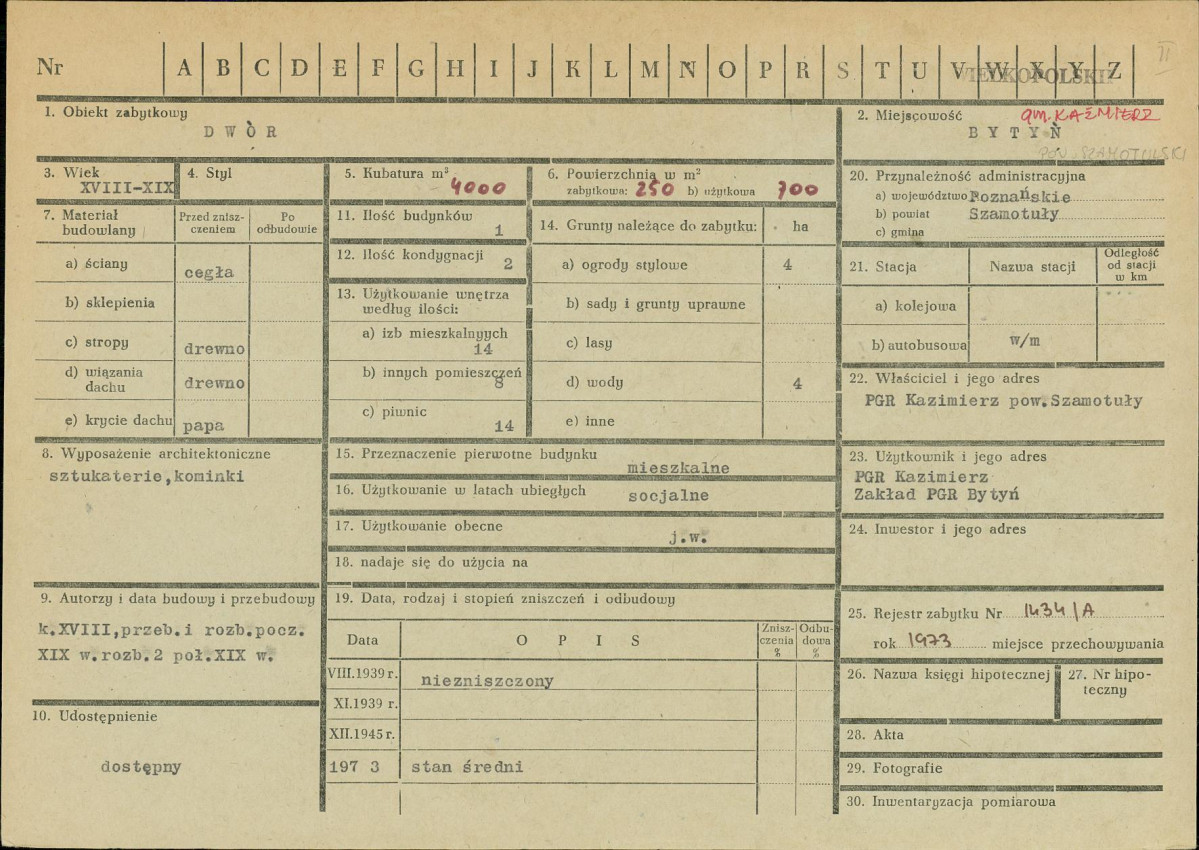 Nr A B C D E F G H I J K L M N O P R S T U V W X Y Z
WIELKOPOLSKI
II
1. Obiekt zabytkowy
DWÓR
2. Miejscowość
gm. KAŹMIERZ
BYTYŃ
POW. SZAMOTULSKI
3. Wiek
XVIII-XIX
4. Styl
5. Kubatura m³
4000
6. Powierzchnia w m²
zabytkowa: 250 b) użytkowa 700
20. Przynależność administracyjna
a) województwo Poznańskie
b) powiat Szamotuły
c) gmina
7. Materiał budowlany
Przed znisz-
czeniem
Po
odbudowie
a) ściany cegła
b) sklepienia
c) stropy drewno
d) wiązania
dachu drewno
e) krycie dachu papa
11. Ilość budynków
1
12. Ilość kondygnacji
2
13. Użytkowanie wnętrza
według ilości:
a) izb mieszkalnych
14
b) innych pomieszczeń
8
c) piwnic
14
14. Grunty należące do zabytku: ha
a) ogrody stylowe 4
b) sady i grunty uprawne
c) lasy
d) wody 4
e) inne
21. Stacja
Nazwa stacji
Odległość
od stacji
w km
a) kolejowa
b) autobusowa w/m
22. Właściciel i jego adres
PGR Kazimierz pow.Szamotuły
8. Wyposażenie architektoniczne
sztukaterie,kominki
15. Przeznaczenie pierwotne budynku
mieszkalne
16. Użytkowanie w latach ubiegłych socjalne
17. Użytkowanie obecne
j.w.
18. nadaje się do użycia na
23. Użytkownik i jego adres
PGR Kazimierz
Zakład PGR Bytyń
24. Inwestor i jego adres
9. Autorzy i data budowy i przebudowy
k.XVIII,przeb.i rozb.pocz.
XIX w.rozb.2 poł.XIX w.
10. Udostępnienie
dostępny
19. Data, rodzaj i stopień zniszczeń i odbudowy
Data
OPIS
Znisz-
czenia
%
Odbu-
dowa
%
VIII.1939 r. niezniszczony
XI.1939 r.
XII.1945 r.
197 3 stan średni
25. Rejestr zabytku Nr 1434/A
rok 1973 miejsce przechowywania
26. Nazwa księgi hipotecznej
27. Nr hipo-
teczny
28. Akta
29. Fotografie
30. Inwentaryzacja pomiarowa